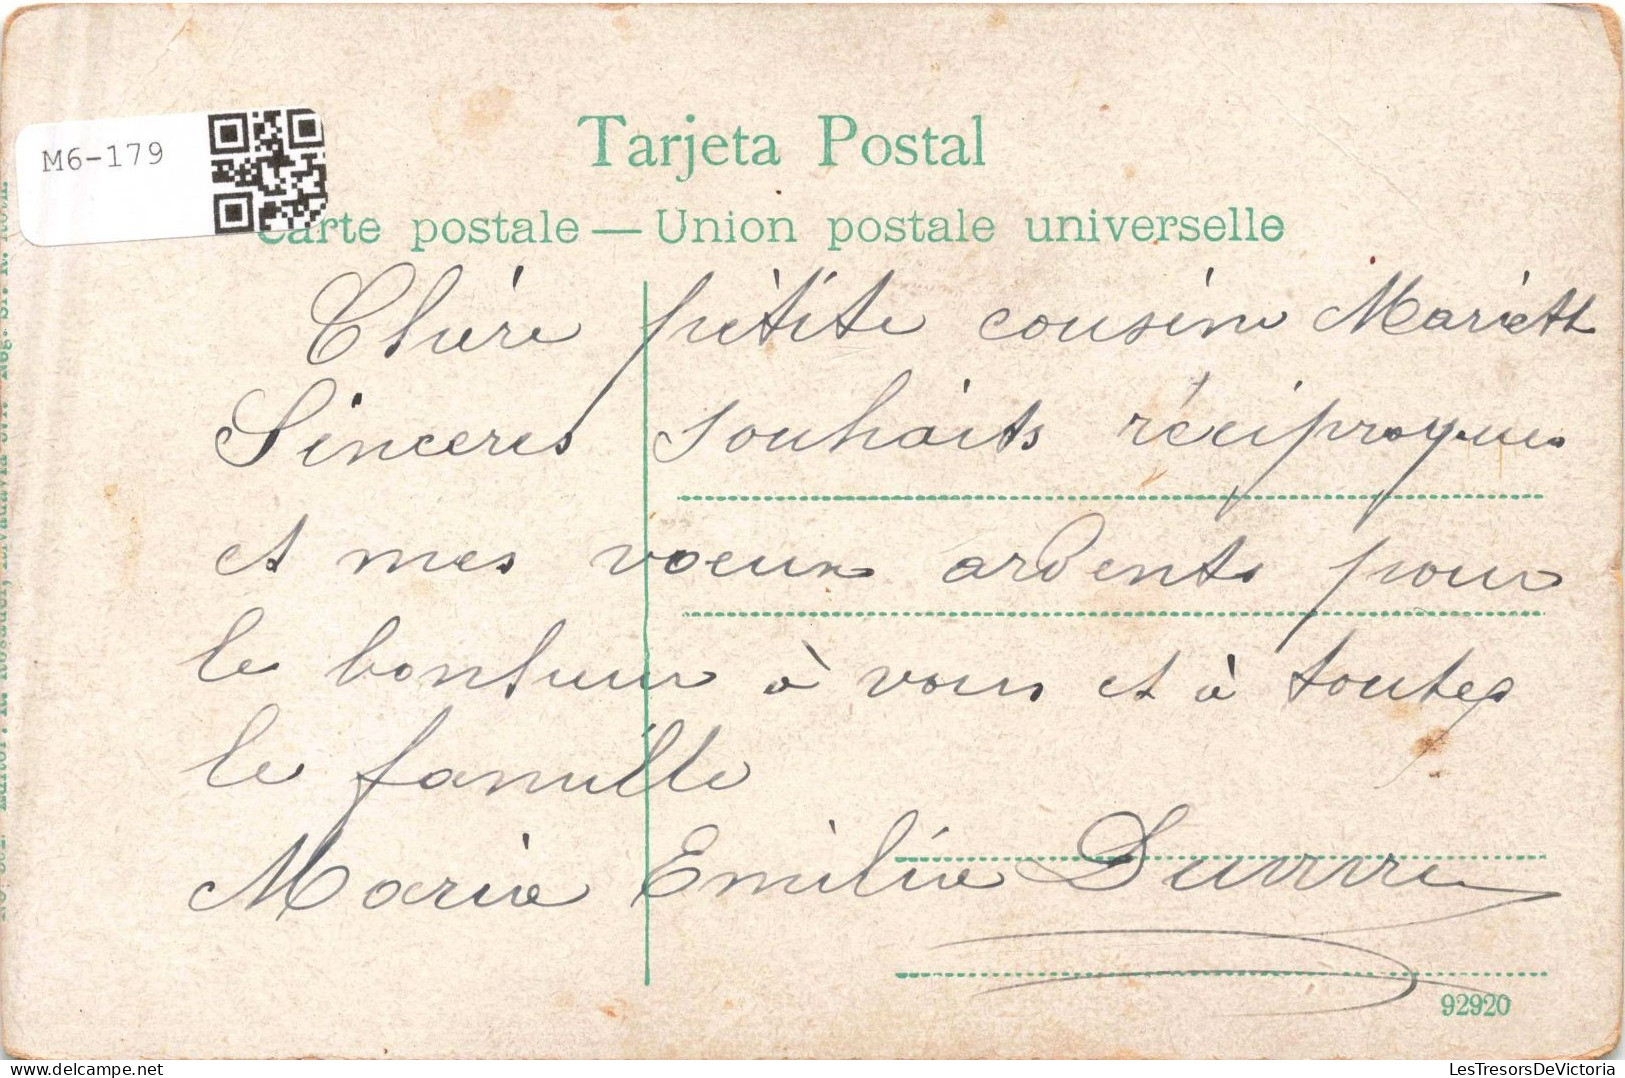 M6-179
Tarjeta Postal
Carte postale — Union postale universelle
Chère petite cousine Mariett
Sinceres souhaits réciproques
et mes voeux ardents pour
le bonheur à vous et à toutes
le famille
Marie Emilie
92920
LesTresorsDeVictoria